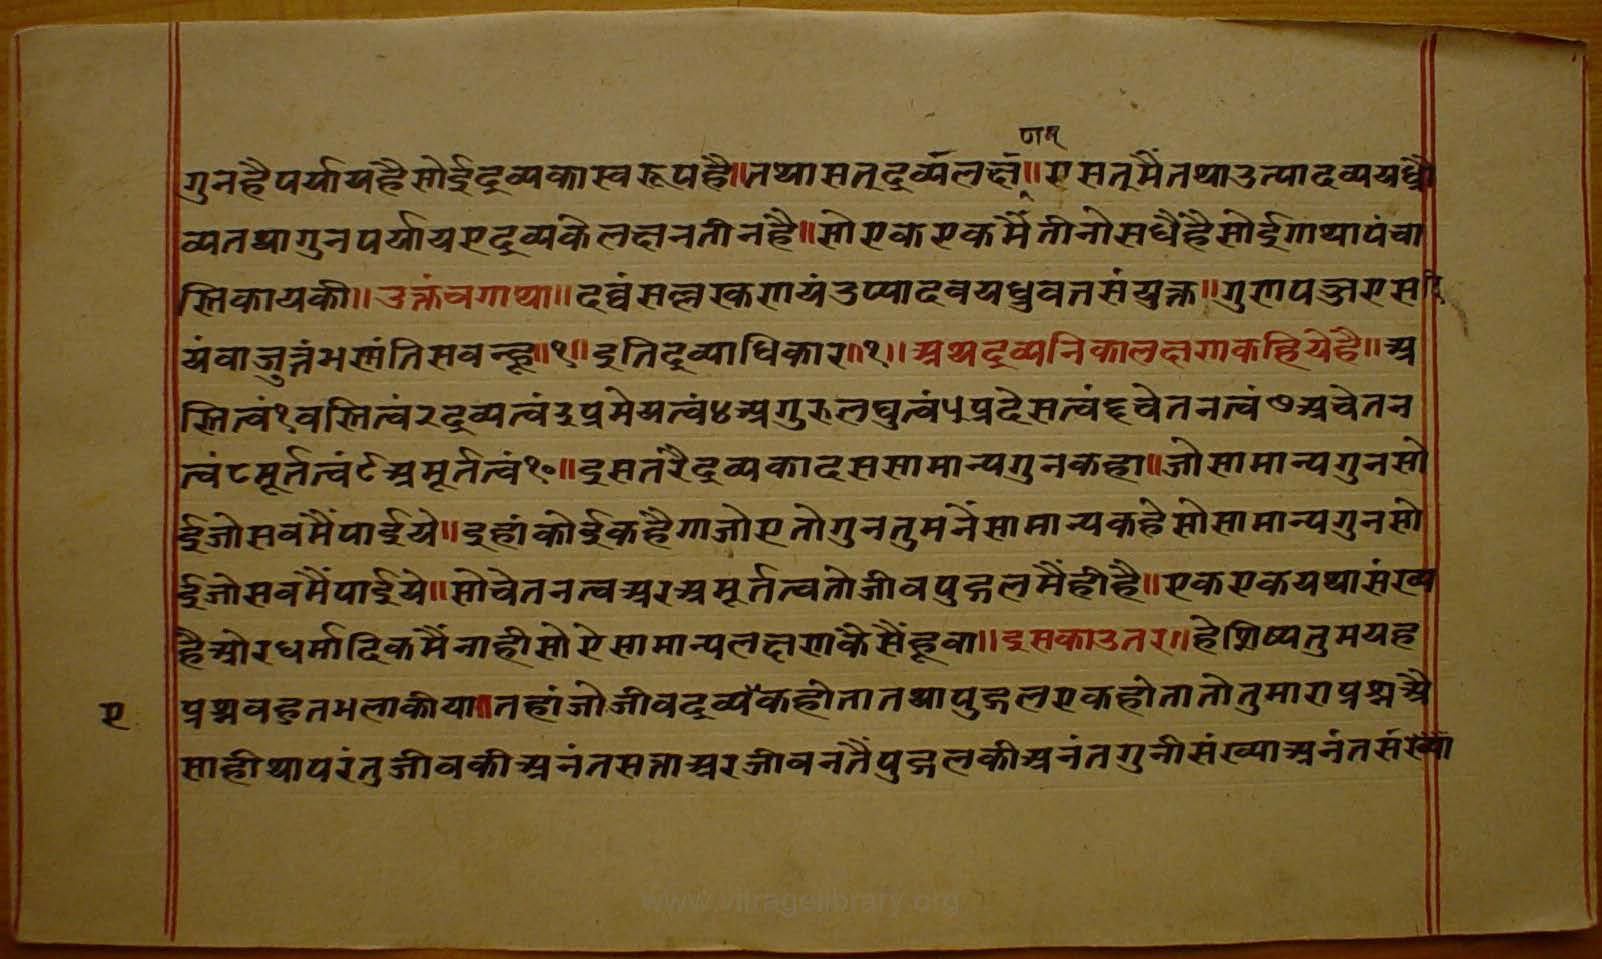 णम्
गुनहैपर्यायहैसोईद्रव्यकास्वरूपहै॥तथासत्द्रव्यंलक्षं॥एसत्मैंतथाउत्पादव्ययध्रौ
व्यतथागुनपर्यायएद्रव्यकेलक्षनतीनहै॥सोएकएकमैंतीनोसधैंहैसोईगाथापंचा
स्तिकायकी॥उक्तंचगाथा॥दव्वंसल्लस्कणयंउप्पादवयधुवतसंयुक्त॥गुणपज्जएसरि
यंवाजुत्तंभणंतिसवन्हू॥१॥इतिद्रव्याधिकार॥१॥अथद्रव्यनिकालक्षणकहियेहै॥अ
स्तित्वं१वस्तित्वं२द्रव्यत्वं३प्रमेयत्वं४अगुरुलघुत्वं५प्रदेसत्वं६चेतनत्वं७अचेतन
त्वं८मूर्तत्वं९अमूर्तत्वं१०॥इसतरैद्रव्यकादससामान्यगुनकहा॥जोसामान्यगुनसो
ईजोसवमैंपाईये॥इहांकोईकहैगाजोएतोगुनतुमनेंसामान्यकहेसोसामान्यगुनसो
ईजोसवमैंपाईये॥सोचेतनत्वअरअमूर्तत्वतोजीवपुद्गलमैंहीहै॥एकएकयथासंख्य
हैओरधर्मादिकमैंनाहीसोऐसामान्यलक्षणकैसैंहूवा॥इसकाउतर॥हेशिष्यतुमयह
ए
प्रश्नवहुतभलाकीया॥तहांजोजीवद्रव्यैकहोतातथापुद्गलएकहोतातोतुमाराप्रश्नअै
साहीथापरंतुजीवकीअनंतसत्ताअरजीवनतैंपुद्गलकीअनंतगुनीसंख्याअनंतसंख्या
www.vitragelibrary.org